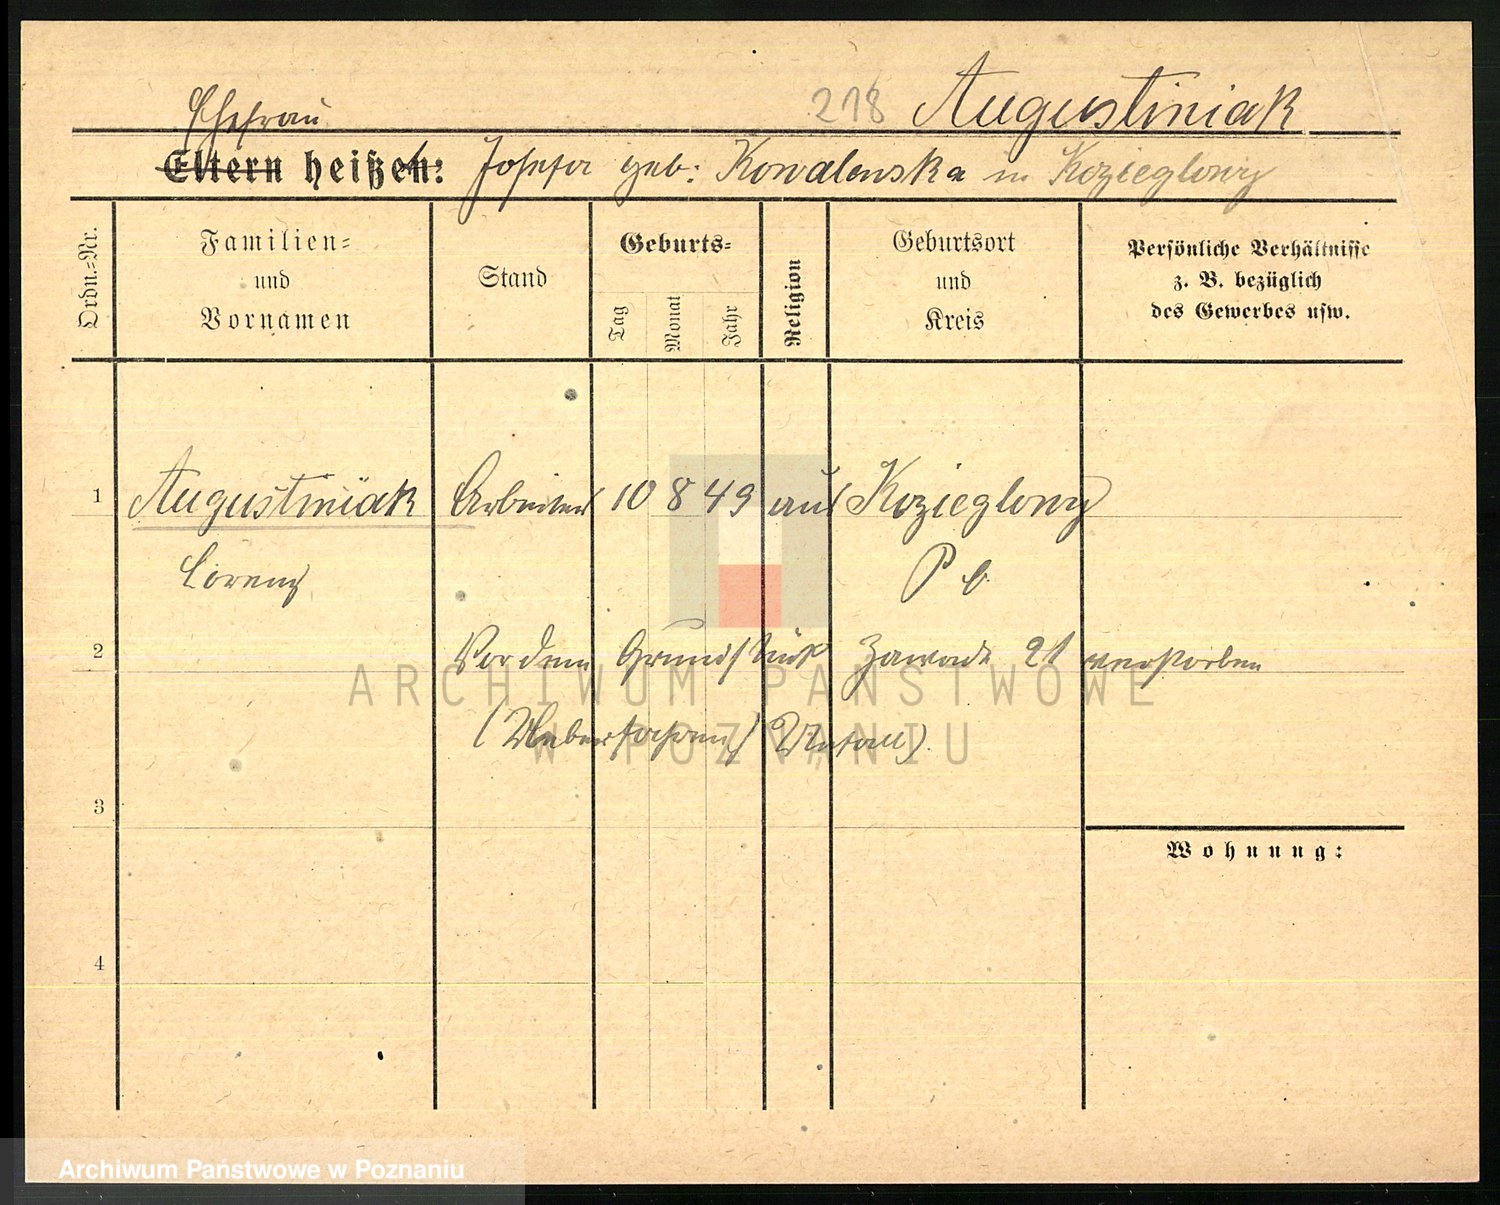 218 Augustiniak
Ehefrau
Eltern heißen: Josefa geb: Kowalewska in Kozieglowy
Ordn.-Nr.
Familien-
und
Vornamen
Stand
Geburts-
Tag
Monat
Jahr
Religion
Geburtsort
und
Kreis
Persönliche Verhältnisse
z. B. bezüglich
des Gewerbes usw.
1 Augustiniak Arbeiter 10 8 49 aus Kozieglowy
Lorenz P b
2 Vor dem Grundstück Zawade 21 verstorben
Unfall).
3
Wohnung:
4
ARCHIWUM PAŃSTWOWE
W POZNANIU
Archiwum Państwowe w Poznaniu